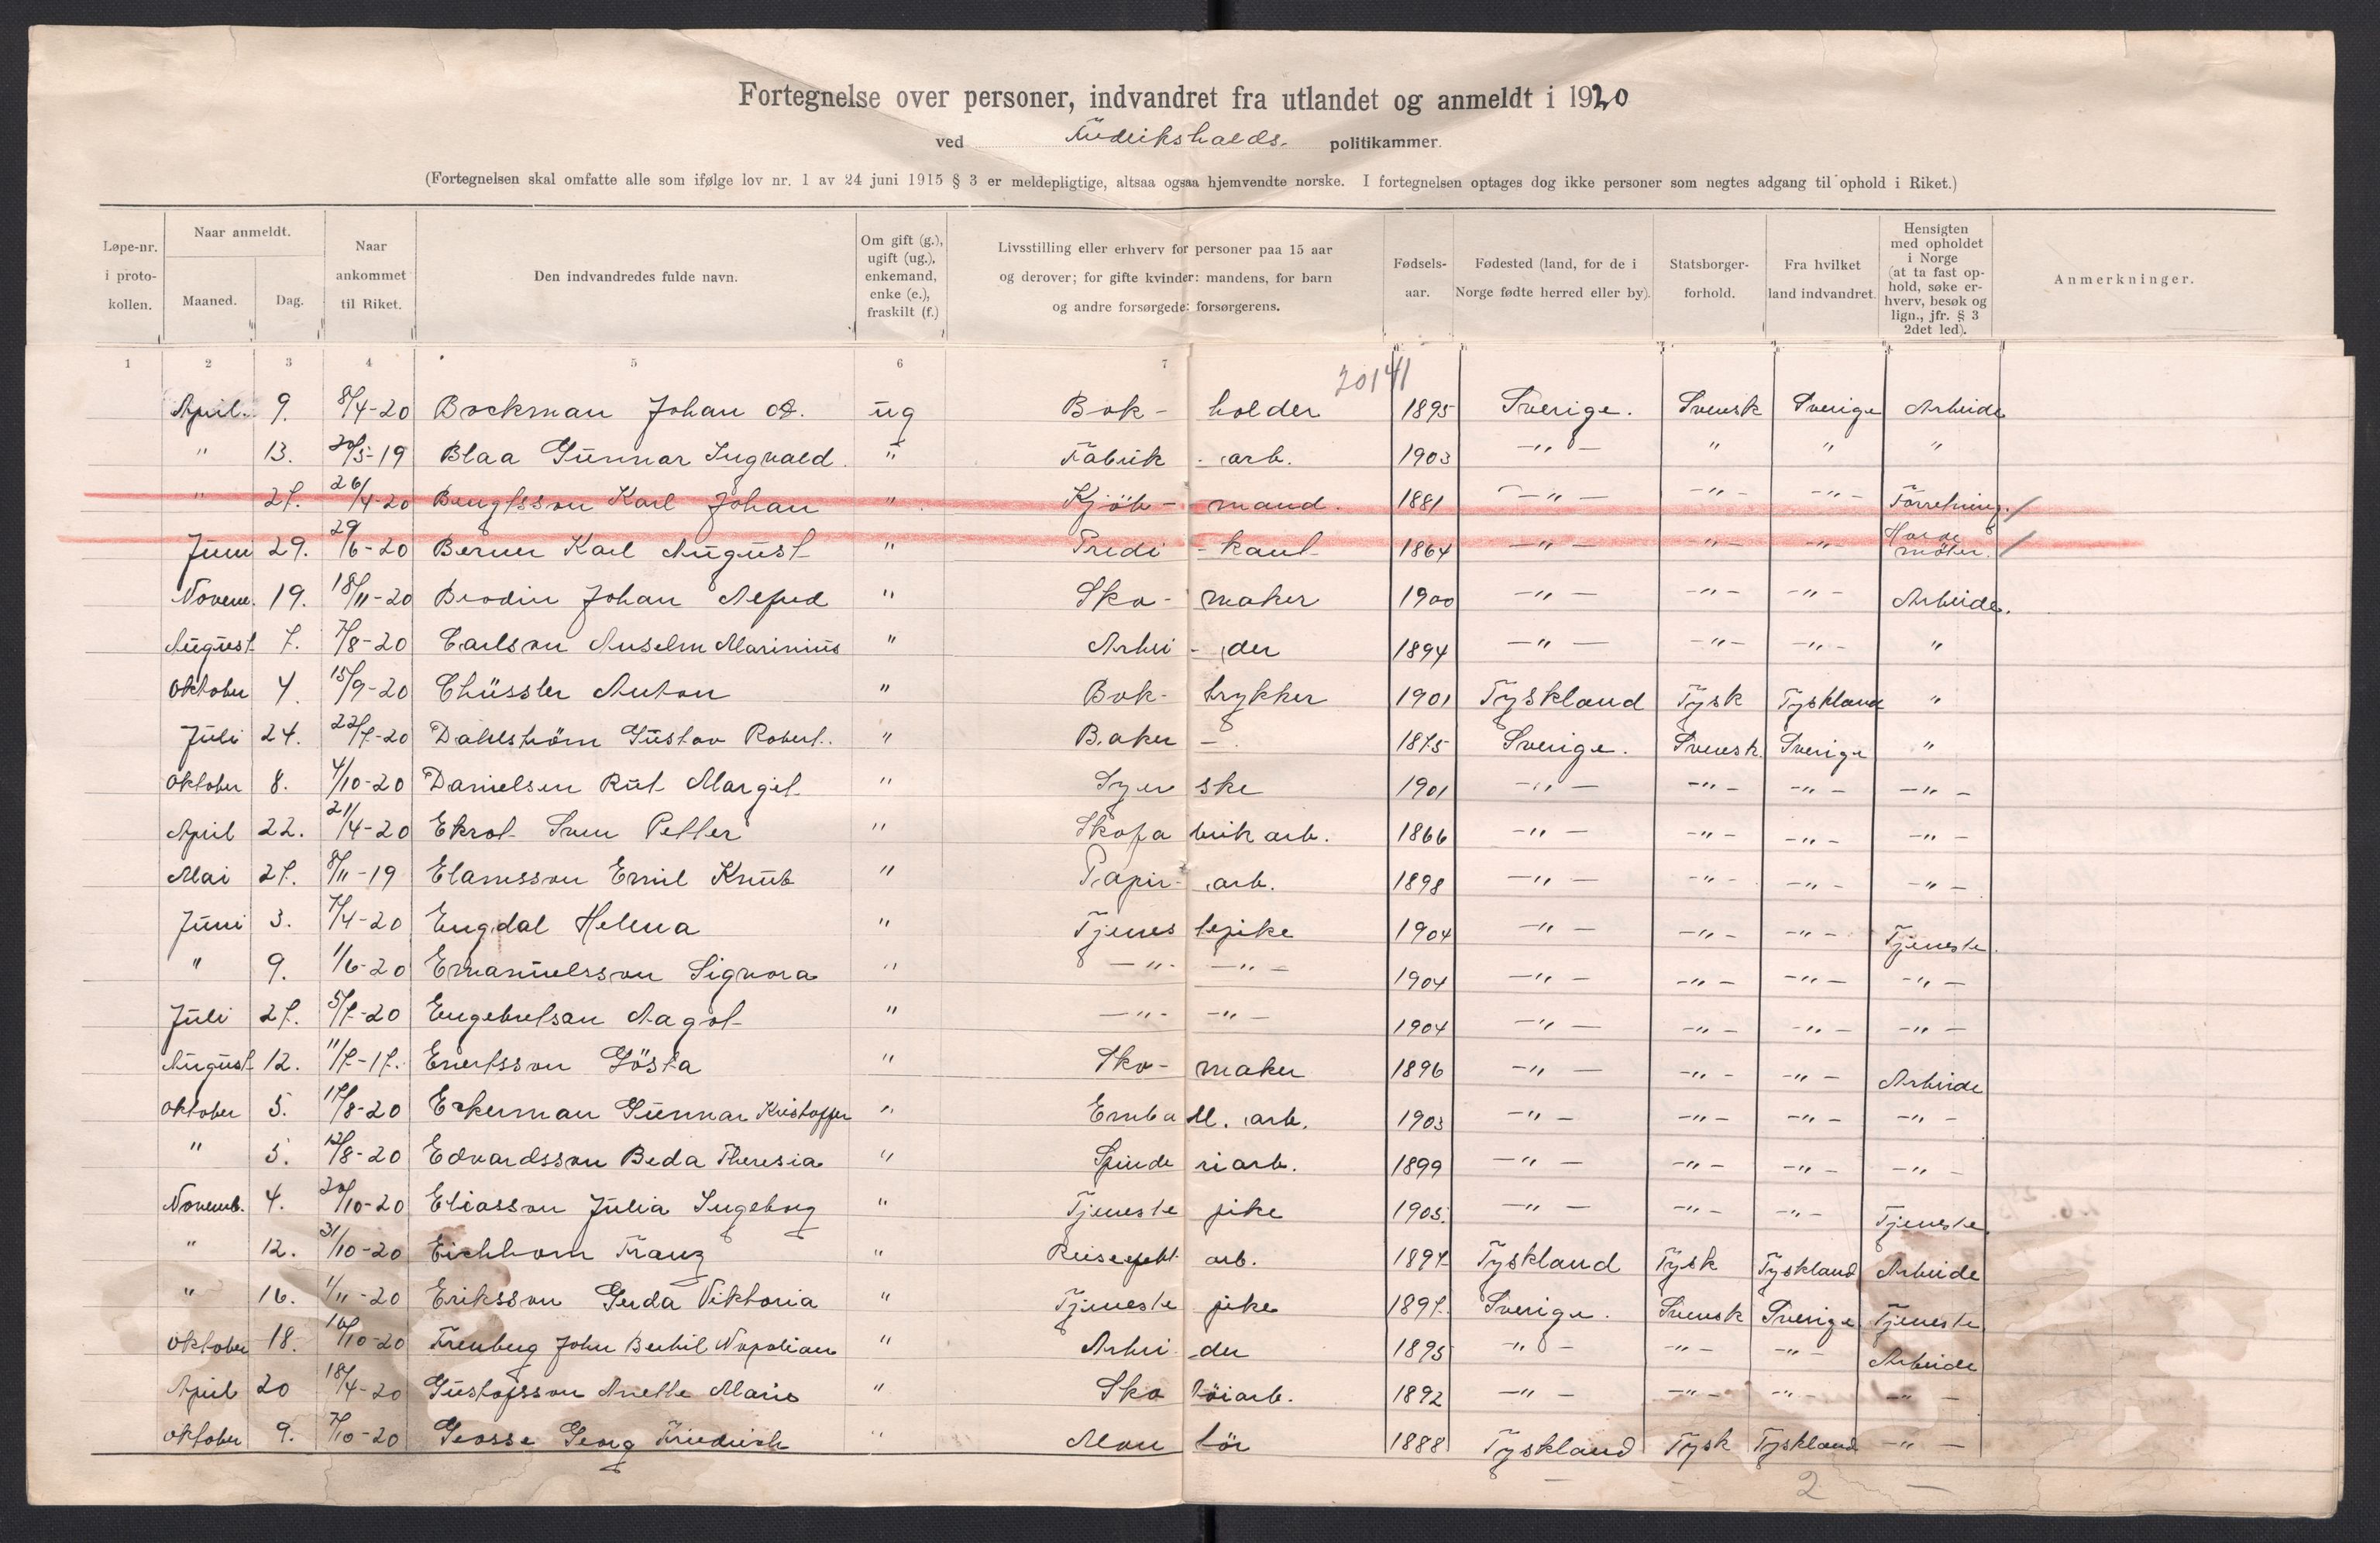 Fortegnelse over personer, indvandret fra utlandet og anmeldt i 1920
ved Fredrikshalds. politikammer.
(Fortegnelsen skal omfatte alle som ifølge lov nr. 1 av 24 juni 1915 § 3 er meldepligtige, altsaa ogsaa hjemvendte norske. I fortegnelsen optages dog ikke personer som negtes adgang til ophold i Riket.)
Løpe-nr. i proto-kollen. Naar anmeldt. Maaned. Dag. Naar ankommet til Riket. Den indvandredes fulde navn. Om gift (g.), ugift (ug.), enkemand, enke (e.), fraskilt (f.) Livsstilling eller erhverv for personer paa 15 aar og derover; for gifte kvinder: mandens, for barn og andre forsørgede: forsørgerens. Fødsels-aar. Fødested (land, for de i Norge fødte herred eller by). Statsborger-forhold. Fra hvilket land indvandret. Hensigten med opholdet i Norge (at ta fast op-hold, søke er-hverv, besøk og lign., jfr. § 3 2det led). Anmerkninger.
1 2 3 4 5 6 7
April 9. 8/4-20 Bockman Johan ug Bok-holder 1895 Sverige. Svensk Sverige Arbeide
" 13. 20/5-19 Blaa Gunnar Ingvald " Fabrik-arb. 1903 -"- " " "
" 27. 26/4-20 Bengtsson Karl Johan " Kjöb-mand. 1881 -"- -"- -"- Forretning. /
Juni 29. 29/6-20 Berner Karl August " Predi-kant 1864 -"- -"- -"- møter. /
Novem. 19. 18/11-20 Brodin Johan Alfred " Sko-maker 1900 -"- -"- -"- Arbeide.
August 7. 7/8-20 Carlson Anselm Marinius " Arbei-der 1894 -"- -"- -"- "
Oktober 4. 15/9-20 Chüssler Anton " Bok-trykker 1901 Tyskland Tysk Tyskland "
Juli 24. 22/7-20 Dahlström Gustav Robert. " Baker - 1875 Sverige. Svensk Sverige "
Oktober 8. 4/10-20 Danielsen Rut Margit " Syerske 1901 -"- -"- -"- -"-
April 22. 21/4-20 Ekrot Sven Petter " Skofabrikarb. 1866 -"- -"- -"- -"-
Mai 27. 8/11-19 Elamsson Emil Knut " Papir-arb. 1898 -"- -"- -"- -"-
Juni 3. 7/4-20 Engdal Helena " Tjenestepike 1904 -"- -"- -"- Tjeneste.
" 9. 1/6-20 Emanuelsson Signora " -"- -"- 1904 -"- -"- -"- -"-
Juli 27. 5/7-20 Engebretsen Aagot " -"- -"- 1904 -"- -"- -"- -"-
August 12. 11/7-17. Evertsson Gösta " Sko-maker 1896 -"- -"- -"- Arbeide
Oktober 5. 17/8-20 Eckerman Gunnar Kristoffer " Emball. arb. 1903 -"- -"- -"- -"-
" 5. 12/8-20 Edvardsson Beda Theresia " Spinderiarb. 1899 -"- -"- -"- -"-
Novemb. 4. 20/10-20 Eliasson Julia Ingeborg " Tjenestepike 1905. -"- -"- -"- Tjeneste
" 12. 31/10-20 Eichhorn Franz " Reiseeffekt arb. 1894 Tyskland Tysk Tyskland Arbeide
" 16. 1/11-20 Eriksson Gerda Viktoria " Tjenestepike 1897. Sverige. Svensk Sverige Tjeneste
Oktober 18. 16/10-20 Frenberg John Bertil Napolian " Arbeider 1895 -"- -"- -"- Arbeide
April 20 18/4-20 Gustafsson Anette Marie " Skotöiarb. 1892 -"- -"- -"- -"-
Oktober 9. 7/10-20 Grosse Georg Friedrich " Montör 1888 Tyskland Tysk Tyskland -"-
2